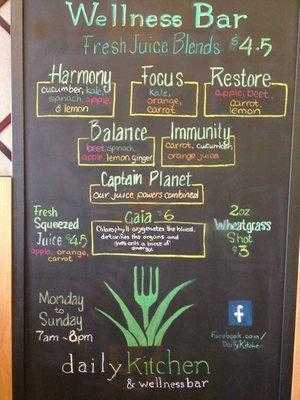 Wellness Bar
Fresh Juice Blends $4.5
Harmony
cucumber, kale,
spinach, apple,
& lemon
Focus
kale,
orange,
carrot
Restore
apple, beet,
carrot
lemon
Balance
beet, spinach,
apple, lemon ginger
Immunity
carrot, cucumber,
orange juice
Captain Planet
our juice powers combined
Fresh
Squeezed
Juice $4.5
apple, orange,
carrot
Gaia $6
Chlorophyll oxygenates the blood,
detoxifies the organs, and
gives a boost of
energy.
2oz
Wheatgrass
Shot
$3
Monday
to
Sunday
7am-8pm
f
Facebook.com/
DailyKitchen
daily Kitchen
& wellness bar